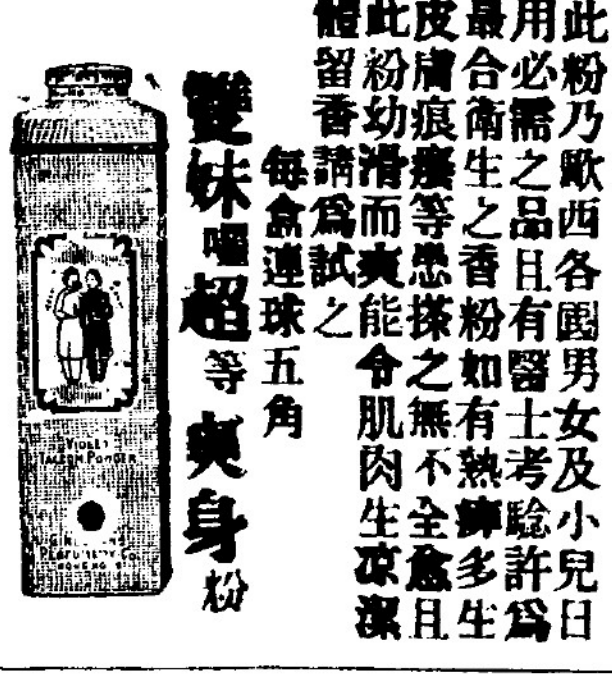 此粉乃歐西各國男女及小兒日
用必需之品且有醫士考騐許爲
最合衛生之香粉如有熱痱多生
皮膚痕癢等患搽之無不全愈且
此粉幼滑而爽能令肌肉生凉潔
體留香請爲試之
每盒連球五角
雙妹嚜超等爽身粉
VIOLET
TALCUM POWDER
PERFUMERY CO.
HONG KONG